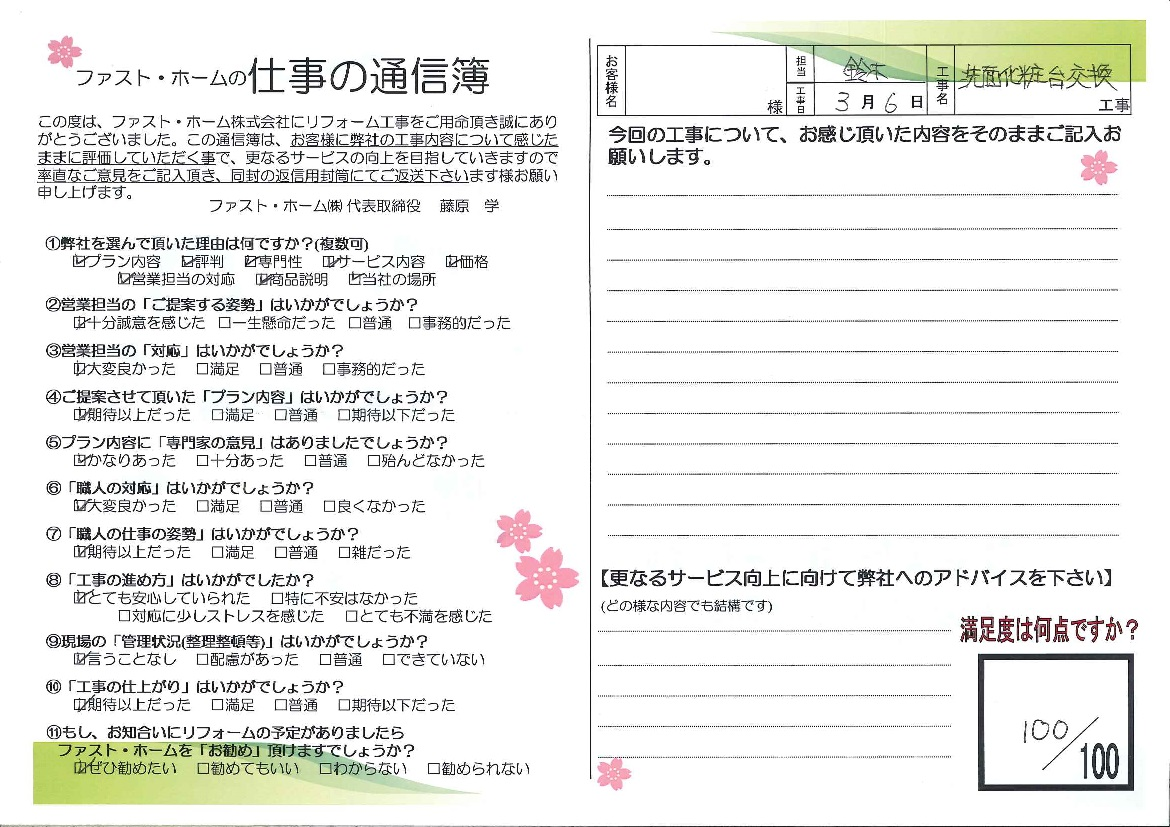 ファスト・ホームの仕事の通信簿
この度は、ファスト・ホーム株式会社にリフォーム工事をご用命頂き誠にあり
がとうございました。この通信簿は、お客様に弊社の工事内容について感じた
ままに評価していただく事で、更なるサービスの向上を目指していきますので
率直なご意見をご記入頂き、同封の返信用封筒にてご返送下さいます様お願い
申し上げます。
ファスト・ホーム㈱ 代表取締役 藤原 学
①弊社を選んで頂いた理由は何ですか?(複数可)
☑プラン内容 ☑評判 ☑専門性 ☑サービス内容 ☑価格
☑営業担当の対応 ☑商品説明 ☑当社の場所
②営業担当の「ご提案する姿勢」はいかがでしょうか?
☑十分誠意を感じた □一生懸命だった □普通 □事務的だった
③営業担当の「対応」はいかがでしょうか?
☑大変良かった □満足 □普通 □事務的だった
④ご提案させて頂いた「プラン内容」はいかがでしょうか?
☑期待以上だった □満足 □普通 □期待以下だった
⑤プラン内容に「専門家の意見」はありましたでしょうか?
☑かなりあった □十分あった □普通 □殆んどなかった
⑥「職人の対応」はいかがでしょうか?
☑大変良かった □満足 □普通 □良くなかった
⑦「職人の仕事の姿勢」はいかがでしょうか?
☑期待以上だった □満足 □普通 □雑だった
⑧「工事の進め方」はいかがでしたか?
☑とても安心していられた □特に不安はなかった
□対応に少しストレスを感じた □とても不満を感じた
⑨現場の「管理状況(整理整頓等)」はいかがでしょうか?
☑言うことなし □配慮があった □普通 □できていない
⑩「工事の仕上がり」はいかがでしょうか?
☑期待以上だった □満足 □普通 □期待以下だった
⑪もし、お知合いにリフォームの予定がありましたら
ファスト・ホームを「お勧め」頂けますでしょうか?
☑ぜひ勧めたい □勧めてもいい □わからない □勧められない
お客様名 様 担当 鈴木 工事日 3月6日 工事名 洗面化粧台交換 工事
今回の工事について、お感じ頂いた内容をそのままご記入お
願いします。
【更なるサービス向上に向けて弊社へのアドバイスを下さい】
(どの様な内容でも結構です)
満足度は何点ですか?
100/100